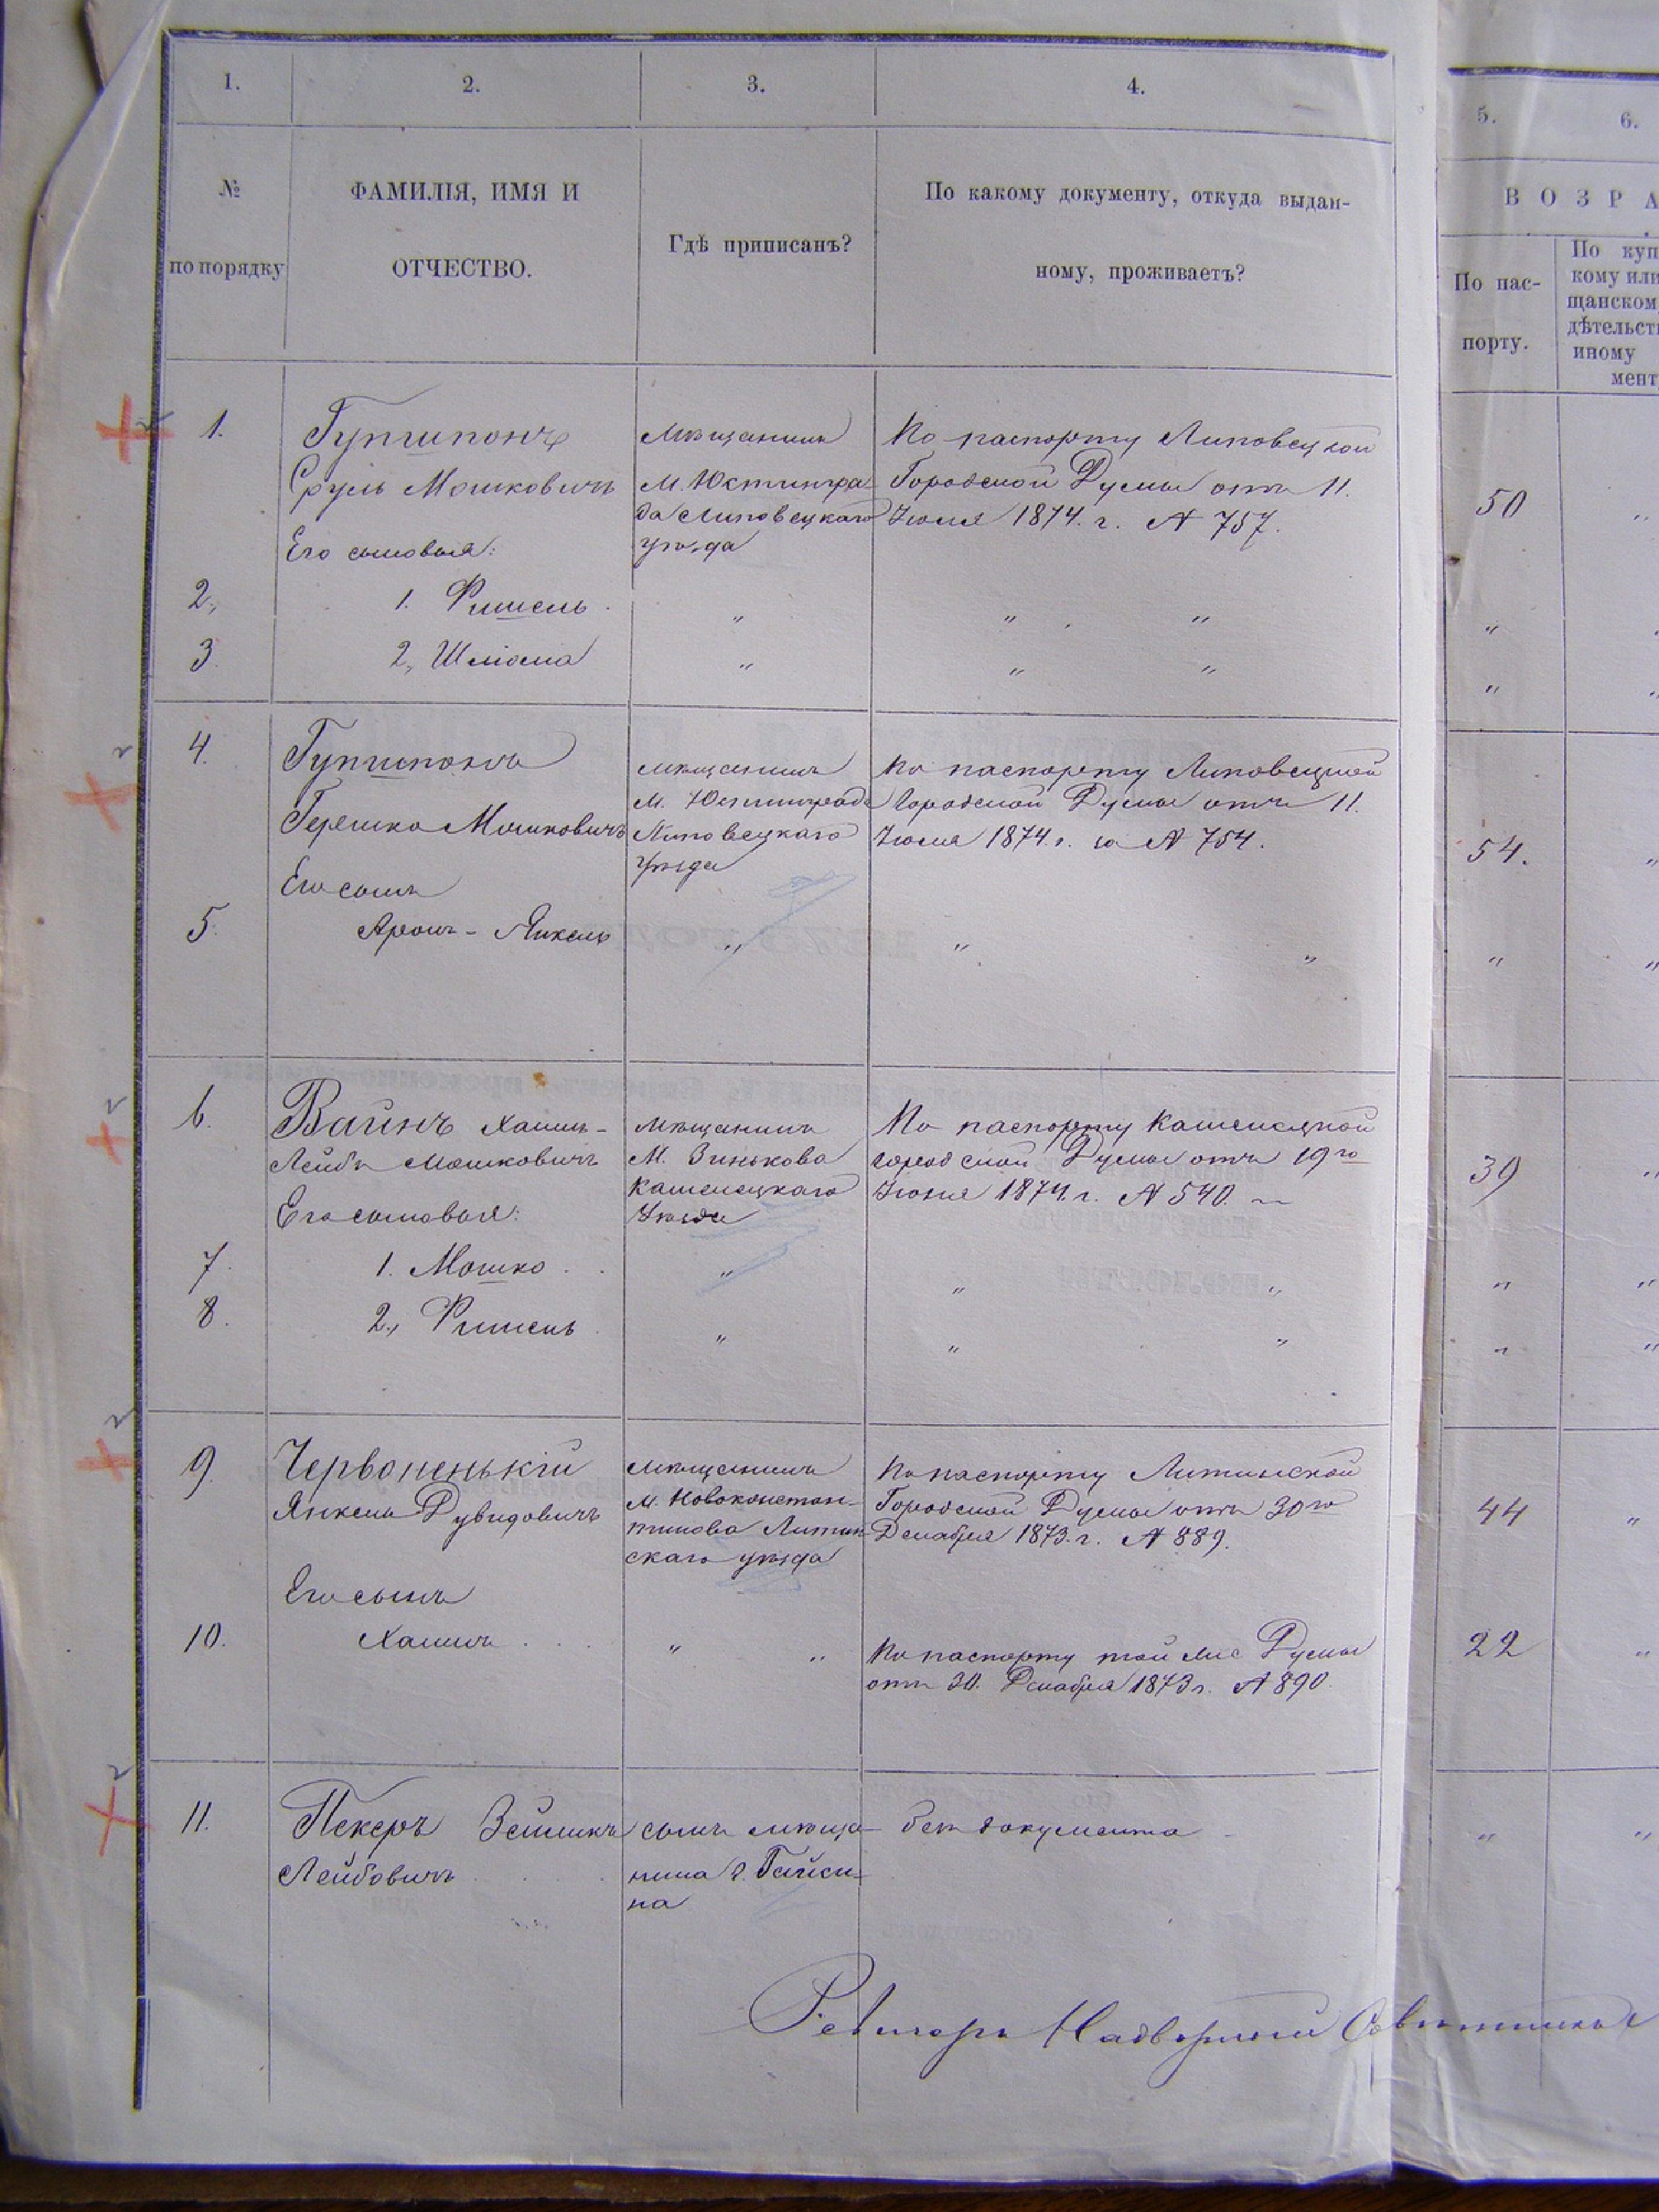 1. 2. 3. 4. 5. 6.
№ по порядку
ФАМИЛІЯ, ИМЯ И
ОТЧЕСТВО.
Гдѣ приписанъ?
По какому документу, откуда выдан-
ному, проживаетъ?
ВОЗРА
По пас-
порту.
По куп
кому или
щанском
дѣтельст
иному
мент
1.
Срулъ Мошковичъ
Его сыновья:
Мѣщанинъ
М. Юстингра
да Липовецкаго
уѣзда
По паспорту Липовецкой
Городской Думы отъ 11.
Іюля 1874. г. № 757.
50 „
2. 1. Фишель „ „ „ „
3. 2, Шліома „ „ „ „
4.
Гершко Мошковичъ
Его сынъ
мѣщанинъ
М. Юстинграда
Липовецкаго
уѣзда
По паспорту Липовецкой
Городской Думы отъ 11.
Іюля 1874. г. за № 754.
54. „
5. Аронъ-Янкель „ „ „ „ „
6.
Вайнъ Хаимъ-
Лейбъ Мошковичъ
Его сыновья:
Мѣщанинъ
М. Зинькова
Каменецкаго
Уѣзда
По паспорту Каменецкой
городской Думы отъ 19го
Іюня 1874. г. № 540.
39 „
7. 1. Мошко „ „ „ „ „
8. 2, Фишель „ „ „ „ „
9.
Червоненькій
Янкель Дувидовичъ
Его сынъ
мѣщанинъ
М. Новоконстан-
тинова Литин-
скаго уѣзда
По паспорту Литинской
Городской Думы отъ 30го
Декабря 1873. г. № 889.
44 „
10. Хаимъ „ „
По паспорту той же Думы
отъ 30. Декабря 1873 г. № 890.
22 „
11.
Пекеръ Зейликъ
Лейбовичъ
сынъ мѣща-
нина г. Гайси-
на
безъ документа
„ „
Надворный Совѣтникъ